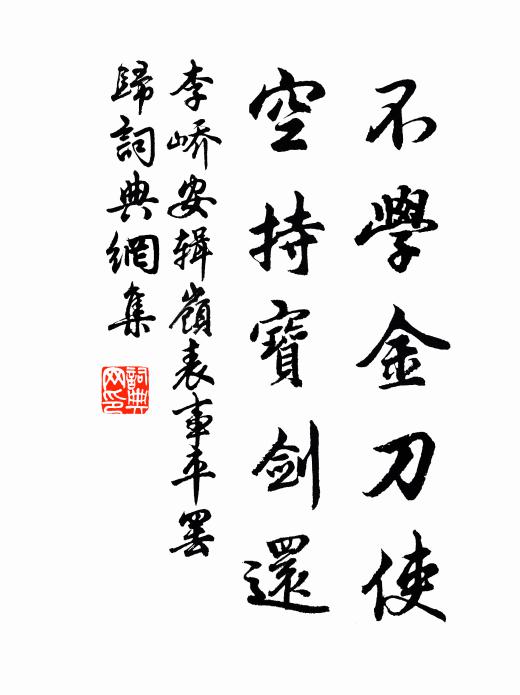 不學金刀使
空持寶劍還
李嶠安輯嶺表事平罷
歸詞典網集
詞典網印